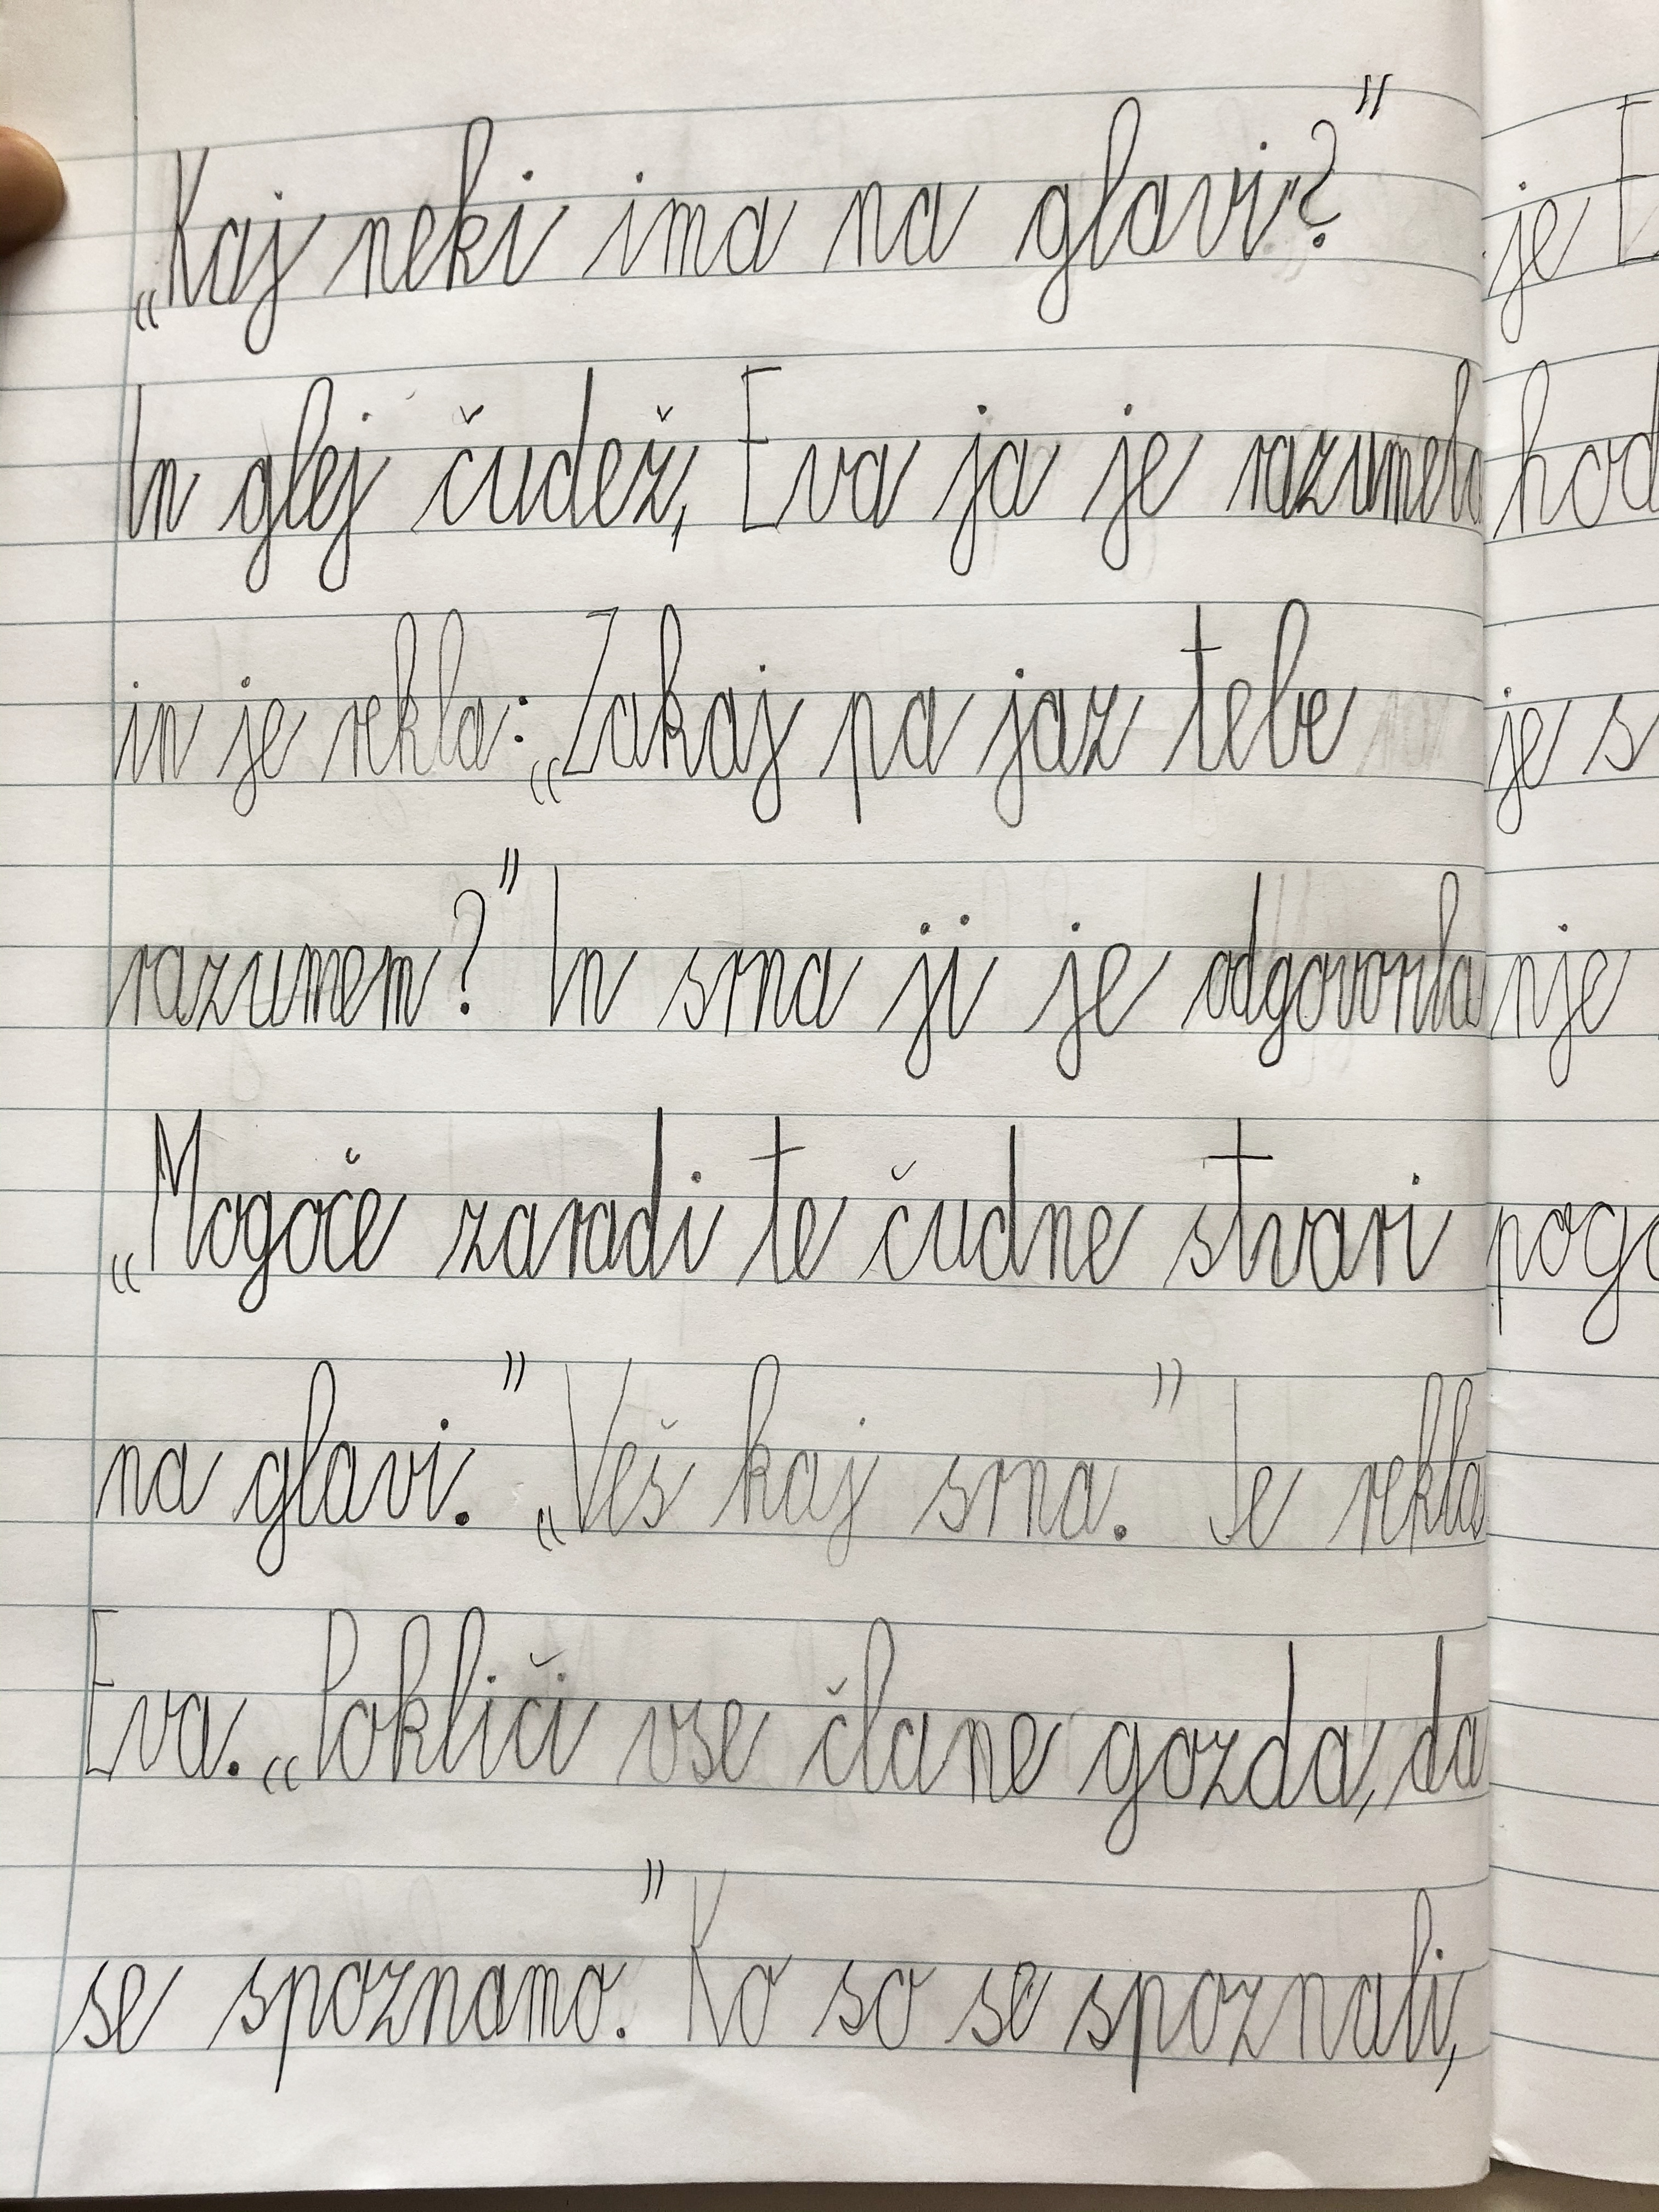 „Kaj neki ima na glavi?”
In glej čudež, Eva ja je razumela
in je rekla: „Zakaj pa jaz tebe
razumem?” In srna ji je odgovorila
„Mogoče zaradi te čudne stvari
na glavi.” „Veš kaj srna.” Je rekla
Eva. „Pokliči vse člane gozda, da
se spoznamo.” Ko so se spoznali,
je
je s
nje